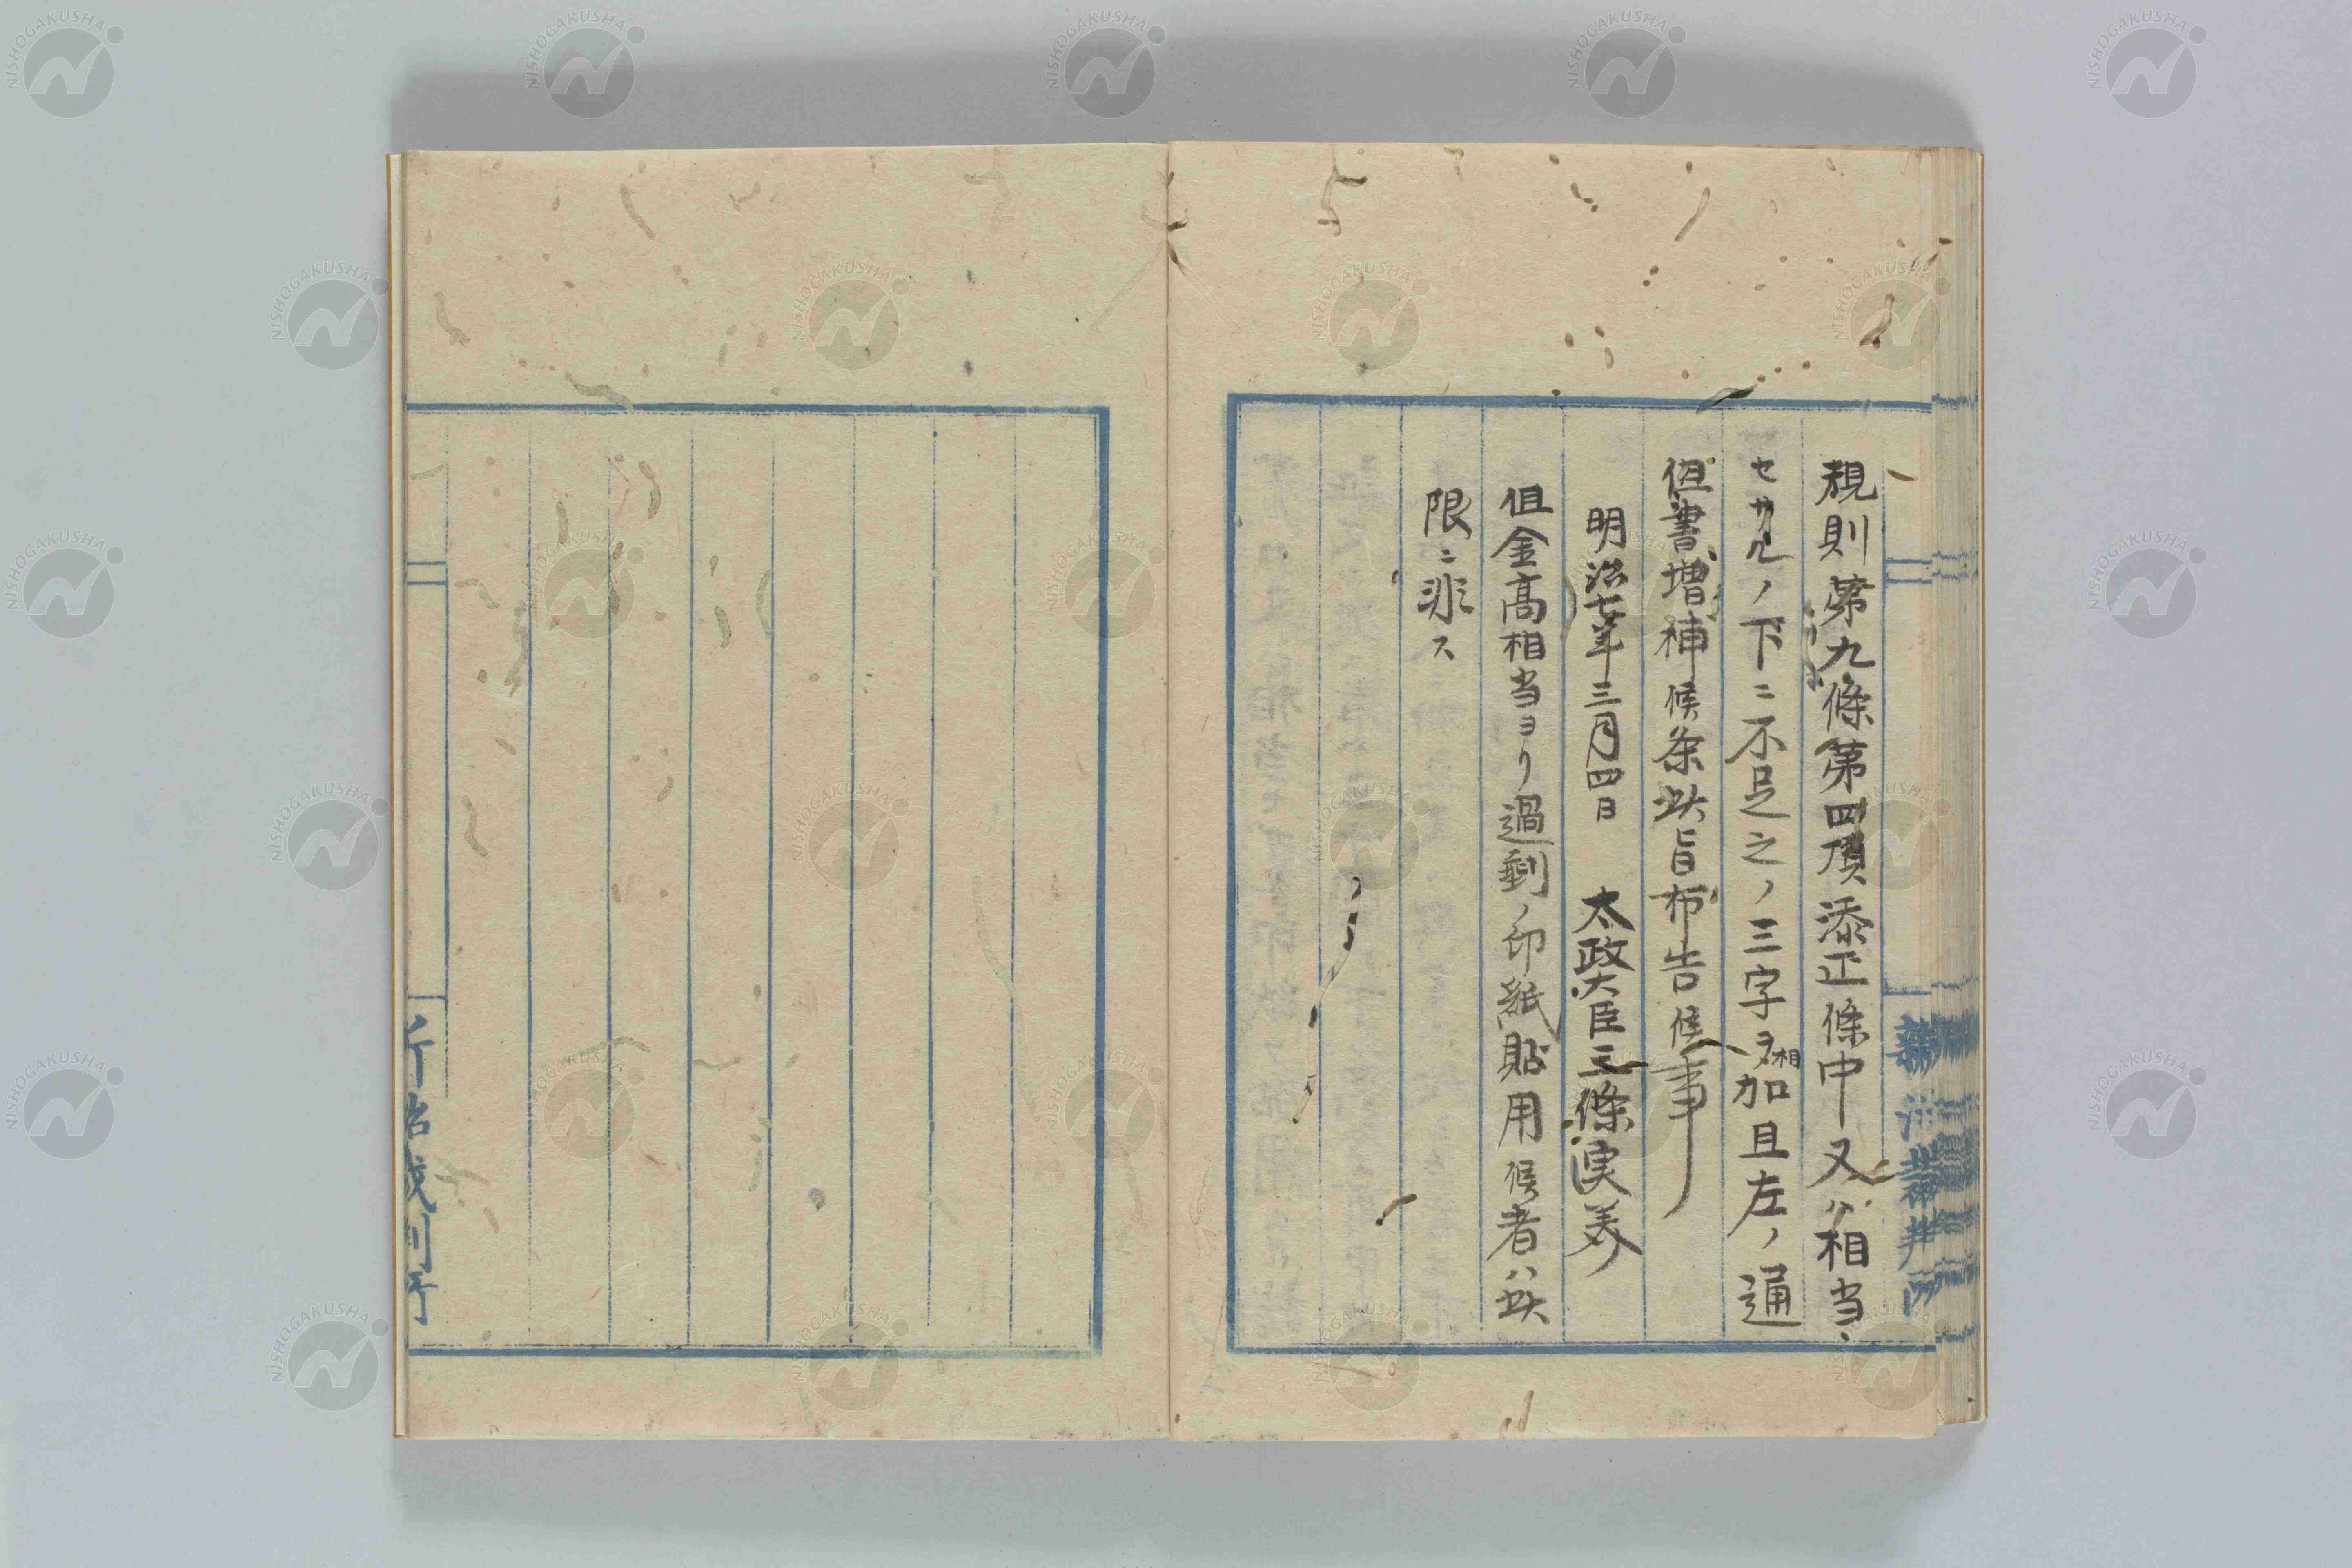 規則第九條第四項添正條中又ハ相当
セサルノ下ニ不足之ノ三字ヲ相加且左ノ通
但書増補候条此旨布告候事
明治七年三月四日 太政大臣三條実美
但金高相当ヨリ過剰ノ印紙貼用候者ハ此
限ニ非ス
NISHOGAKUSHA